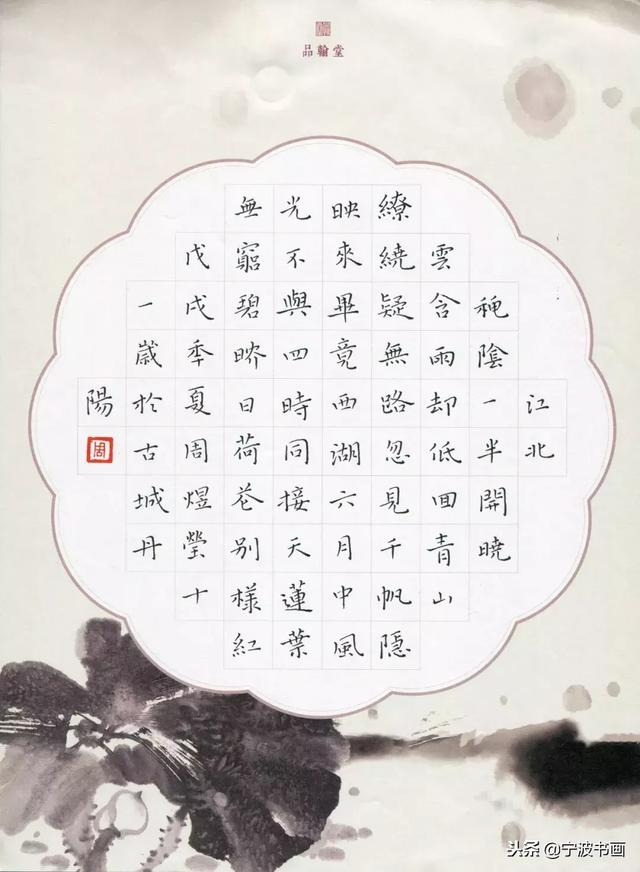 品翰堂
江北
穐陰一半開曉
雲含雨却低囬青山
繚繞疑無路忽見千帆隱
映來畢竟西湖六月中風
光不與四時同接天蓮葉
無窮碧映日荷花別樣紅
戊戌季夏周煜瑩十
一歲於古城丹
陽
周
头条@宁波书画